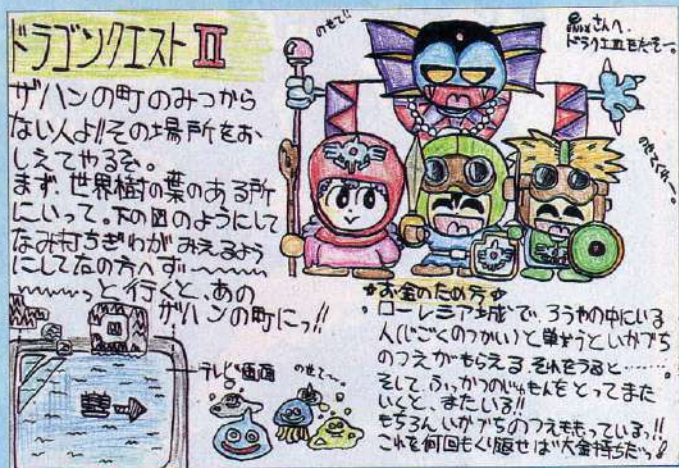 ドラゴンクエストⅡ
ザハンの町のみつから
ない人よ!!その場所をお
しえてやるぞ。
まず、世界樹の葉のある所
にいって。下の図のようにして
なみ打ちぎわがみえるよう
にして右の方へず〜〜〜
〜〜〜っと行くと、あの
ザハンの町にっ!!
テレビ画面
のせて!!
さんへ.
ドラクエⅢをだそー。
のせてくれー。
のせて〜。
☆お金のため方☆
ローレシア城で、ろうやの中にいる
人(じごくのつかい)と単せうといかづち
のつえがもらえる.それをうると……。
そして、ふっかつのじゅもんをとってまた
いくと、またいる!!
もちろんいかづちのつえももっている!!
これを何回もくり返せば大金持ちだっ!